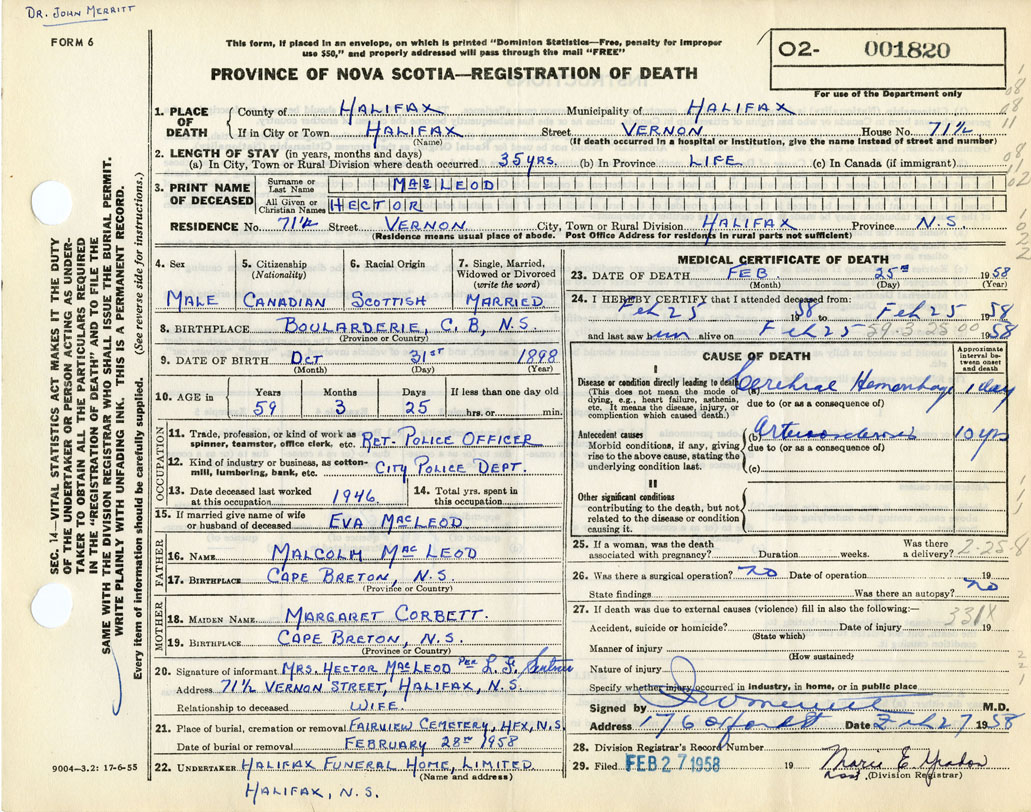 DR. JOHN MERRITT
FORM 6
This form, if placed in an envelope, on which is printed "Dominion Statistics—Free, penalty for improper
use $50," and properly addressed will pass through the mail "FREE"
PROVINCE OF NOVA SCOTIA—REGISTRATION OF DEATH
O2- 001820
For use of the Department only
1. PLACE OF DEATH
County of HALIFAX Municipality of HALIFAX
If in City or Town HALIFAX Street VERNON House No. 71½
(Name) (If death occurred in a hospital or institution, give the name instead of street and number)
2. LENGTH OF STAY (in years, months and days)
(a) In City, Town or Rural Division where death occurred 35 YRS. (b) In Province LIFE (c) In Canada (if immigrant)
3. PRINT NAME OF DECEASED
Surname or Last Name MACLEOD
All Given or Christian Names HECTOR
RESIDENCE No. 71½ Street VERNON City, Town or Rural Division HALIFAX Province N.S.
(Residence means usual place of abode. Post Office Address for residents in rural parts not sufficient)
4. Sex
MALE
5. Citizenship (Nationality)
CANADIAN
6. Racial Origin
SCOTTISH
7. Single, Married, Widowed or Divorced (write the word)
MARRIED
8. BIRTHPLACE BOULARDERIE, C.B, N.S.
(Province or Country)
9. DATE OF BIRTH OCT 31ST 1898
(Month) (Day) (Year)
10. AGE in
Years Months Days If less than one day old
59 3 25 hrs. or min.
OCCUPATION
11. Trade, profession, or kind of work as
spinner, teamster, office clerk, etc. RET. POLICE OFFICER
12. Kind of industry or business, as cotton-
mill, lumbering, bank, etc. CITY POLICE DEPT.
13. Date deceased last worked at this occupation. 1946.
14. Total yrs. spent in this occupation.
15. If married give name of wife
or husband of deceased EVA MACLEOD
FATHER
16. NAME MALCOLM MAC LEOD
17. BIRTHPLACE CAPE BRETON, N.S.
(Province or Country)
MOTHER
18. MAIDEN NAME MARGARET CORBETT.
19. BIRTHPLACE CAPE BRETON, N.S.
(Province or Country)
20. Signature of informant MRS. HECTOR MACLEOD PER
Address 71½ VERNON STREET, HALIFAX, N.S.
Relationship to deceased WIFE.
21. Place of burial, cremation or removal FAIRVIEW CEMETERY, HFX, N.S.
Date of burial or removal FEBRUARY 28TH 1958
22. UNDERTAKER HALIFAX FUNERAL HOME, LIMITED.
(Name and address)
HALIFAX, N.S.
9004-3.2: 17-6-55
MEDICAL CERTIFICATE OF DEATH
23. DATE OF DEATH FEB 25TH 1958
(Month) (Day) (Year)
24. I HEREBY CERTIFY that I attended deceased from:
Feb 25 1958 to Feb 25 1958
and last saw him alive on Feb 25 1958
59.3.25 00
CAUSE OF DEATH
Approximate interval between onset and death
I
Disease or condition directly leading to death (a) Cerebral Hemorrhage 1 day
(This does not mean the mode of
dying, e.g., heart failure, asthenia,
etc. It means the disease, injury, or
complication which caused death.)
due to (or as a consequence of)
Antecedent causes (b) 10 yrs
Morbid conditions, if any, giving
rise to the above cause, stating the
underlying condition last.
due to (or as a consequence of)
(c)
II
Other significant conditions
contributing to the death, but not
related to the disease or condition
causing it.
25. If a woman, was the death associated with pregnancy? Duration weeks. Was there a delivery?
2-25-8
26. Was there a surgical operation? no Date of operation 19
State findings Was there an autopsy? no
27. If death was due to external causes (violence) fill in also the following:—
331X
Accident, suicide or homicide? Date of injury 19
(State which)
Manner of injury
(How sustained)
Nature of injury
Specify whether injury occurred in industry, in home, or in public place
Signed by M.D.
Address 176 Oxford St Date Feb 27 1958
28. Division Registrar's Record Number
29. Filed FEB 27 1958 19 Marie E.
Asst. (Division Registrar)
SEC. 14—VITAL STATISTICS ACT MAKES IT THE DUTY
OF THE UNDERTAKER OR PERSON ACTING AS UNDER-
TAKER TO OBTAIN ALL THE PARTICULARS REQUIRED
IN THE "REGISTRATION OF DEATH" AND TO FILE THE
SAME WITH THE DIVISION REGISTRAR WHO SHALL ISSUE THE BURIAL PERMIT.
WRITE PLAINLY WITH UNFADING INK. THIS IS A PERMANENT RECORD.
Every item of information should be carefully supplied. (See reverse side for instructions.)